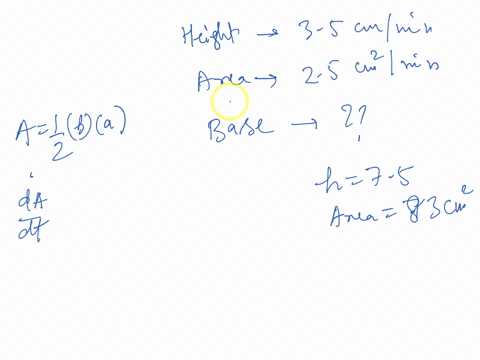 Height → 3.5 cm/min
Area → 2.5 cm²/min
Base → ??
A = 1/2 (b)(a)
dA/dt
h = 7.5
Area = 83 cm²